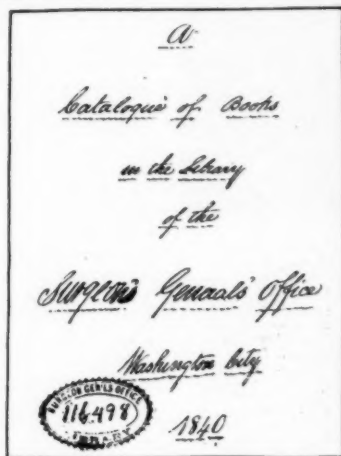 A
Catalogue of Books
in the Library
of the
Surgeon's Generals' Office
Washington City
SURGEON GEN'LS OFFICE
116.498
1840